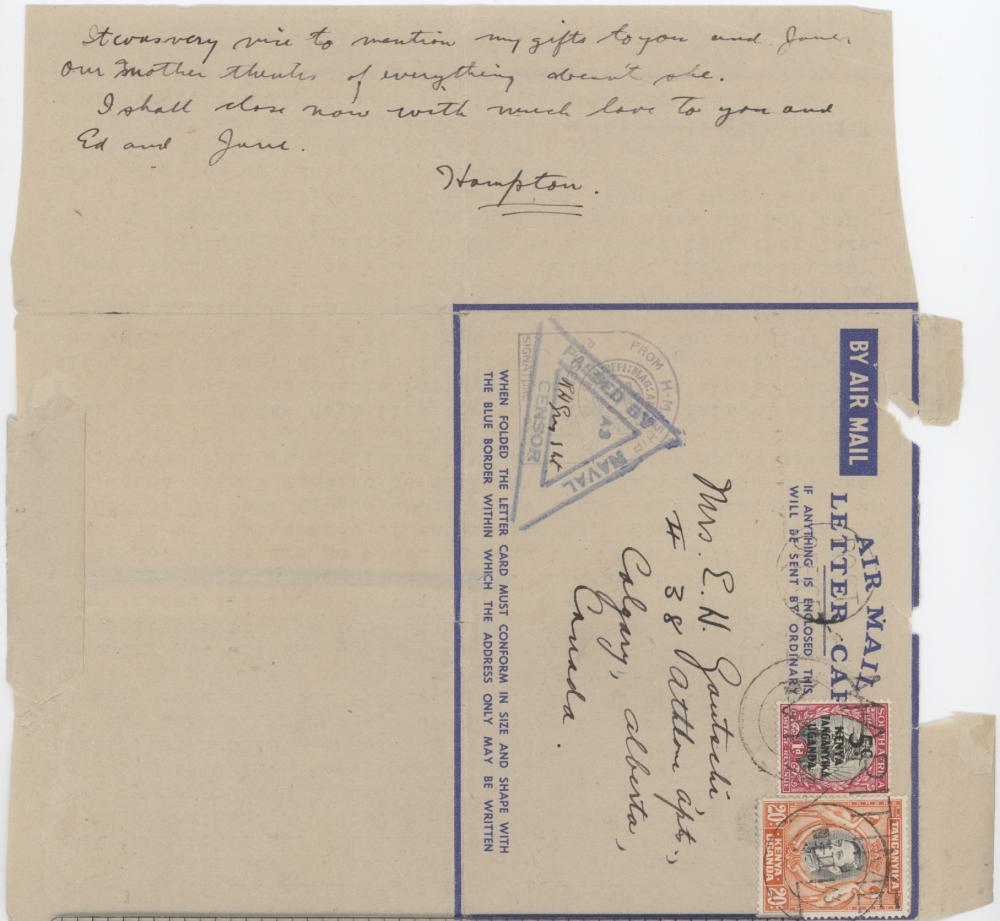 It was very nice to mention my gifts to you and June.
Our mother thinks of everything doesn't she.
I shall close now with much love to you and
Ed and June.
Hampton.
BY AIR MAIL
AIR MAIL
LETTER CAR
IF ANYTHING IS ENCLOSED THIS
WILL BE SENT BY ORDINARY
Mrs. E. N. Gautschi
# 38 Aththon apts.,
Calgary, Alberta,
Canada.
FROM H.M. SHIP
PASSED BY
NAVAL
CENSOR
SIGNATURE
WHEN FOLDED THE LETTER CARD MUST CONFORM IN SIZE AND SHAPE WITH
THE BLUE BORDER WITHIN WHICH THE ADDRESS ONLY MAY BE WRITTEN
SOUTH AFRICA
5c
KENYA
TANGANYIKA
UGANDA
1d
POSTAGE REVENUE
TANGANYIKA
KENYA
UGANDA
20c
20c